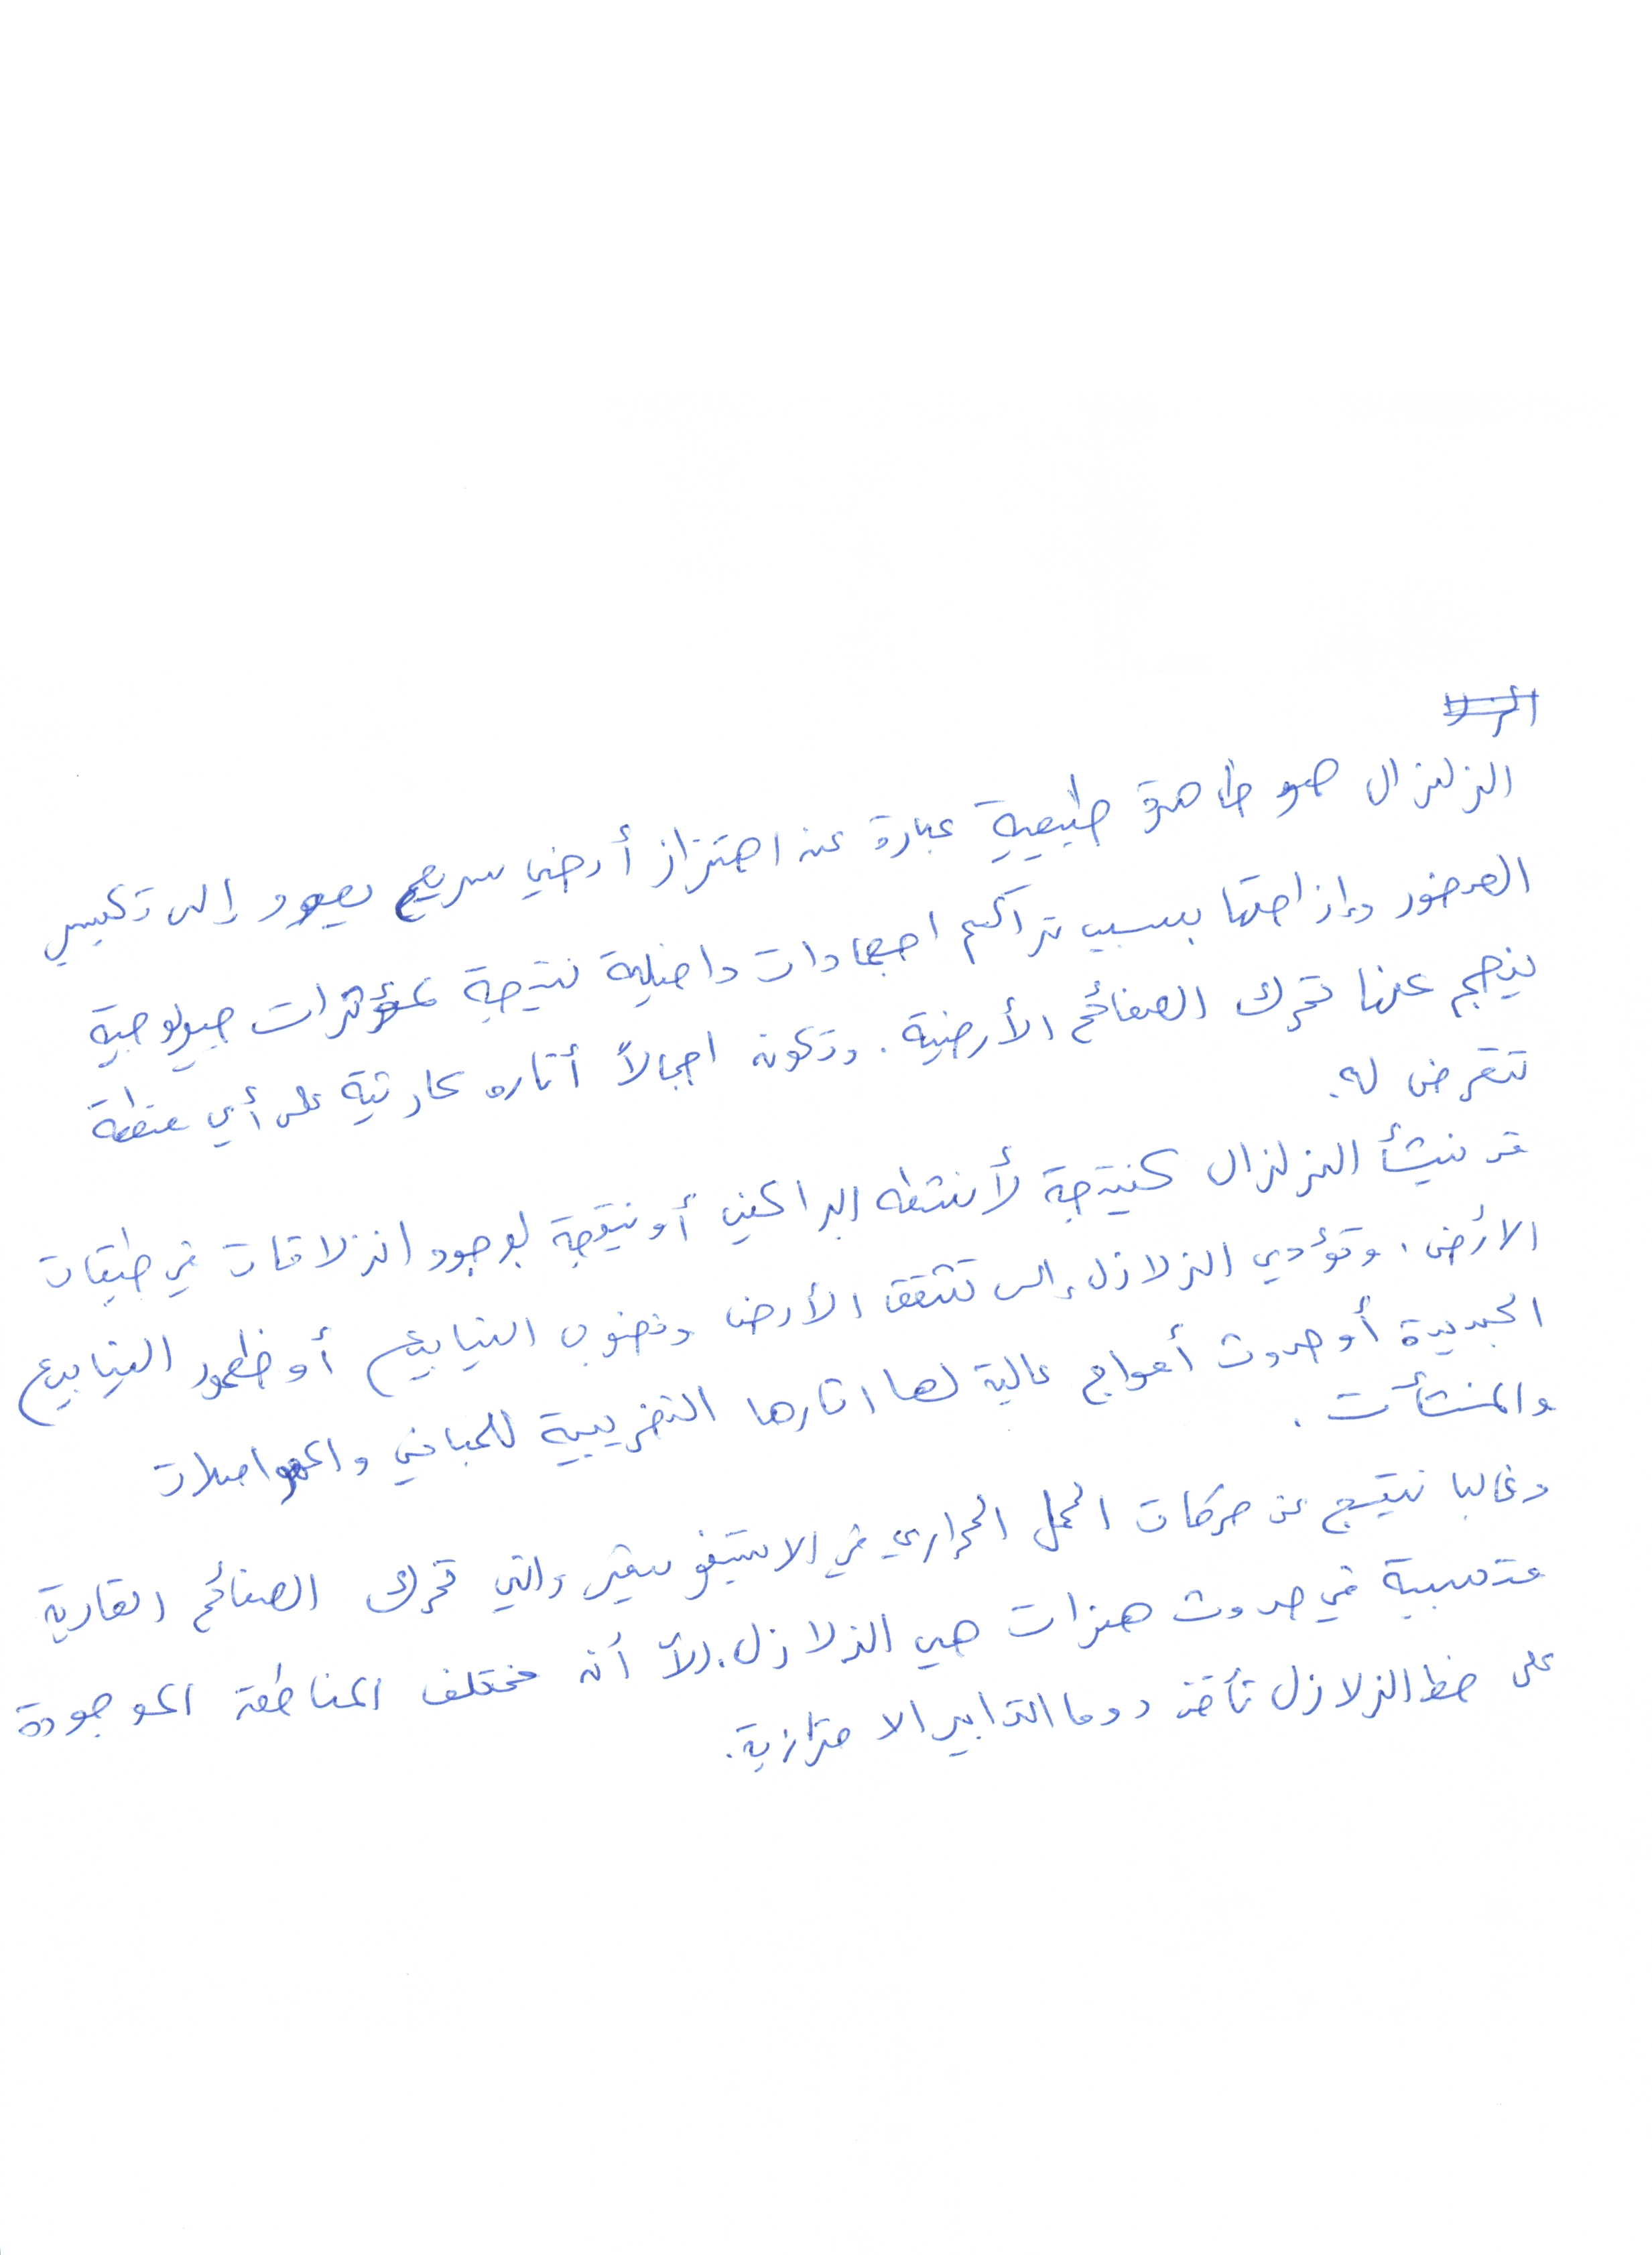 الزلزال هو ظاهرة طبيعية عبارة عن اهتزاز أرضي سريع يعود إلى تكسير
الصخور وإزاحتها بسبب تراكم اجهادات داخلية نتيجة لمؤثرات جيولوجية
ينجم عنها تحرك الصفائح الأرضية. وتكون اجمالاً أثاره كارثية على أي منطقة
تتعرض له.
قد ينشأ الزلزال كنتيجة لأنشطه البراكين أو نتيجة لوجود انزلاقات في طبقات
الارُض، وتؤدي الزلازل إلى تشقق الأرض ونضوب الينابيع أو ظهور الينابيع
الجديدة أو حدوث أمواج عالية لها اثارها التخريبية للمباني والمواصلات
والمنشأت.
وغالبا ينتج عن حركات الحمل الحراري في الاستينوسفير والتي تحرك الصفائح القارية
متسببة في حدوث هزات هي الزلازل. الاّ أن مختلف المناطق الموجودة
على خط الزلازل تأخذ دوما التدابير الاحترازية.